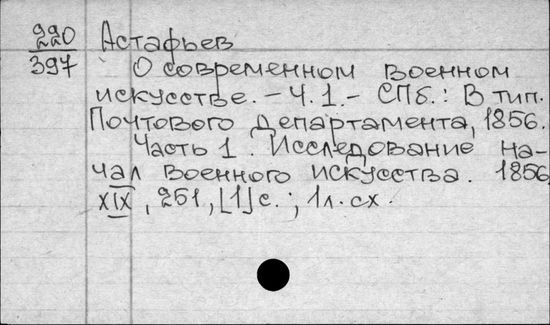 220 Астафьев
397 О современном военном
искусстве. – Ч. 1. – СПб. : В тип.
Почтового департамента, 1856.
Часть 1. Исследование на-
чал военного искусства. 1856
XIX, 251, [1] с. ; 1 л. сх.